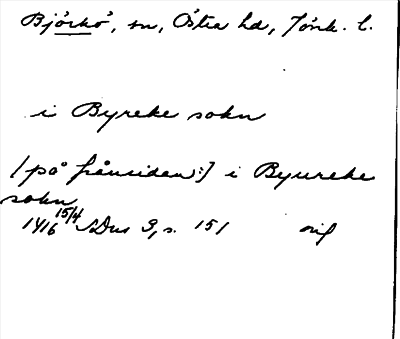 Björkö, sn, Östra hd, Jönk. l.
i Byreke sokn
[på frånsidan:] i Byureke
sokn
1416 15/4 SDns 3, s. 151 orig